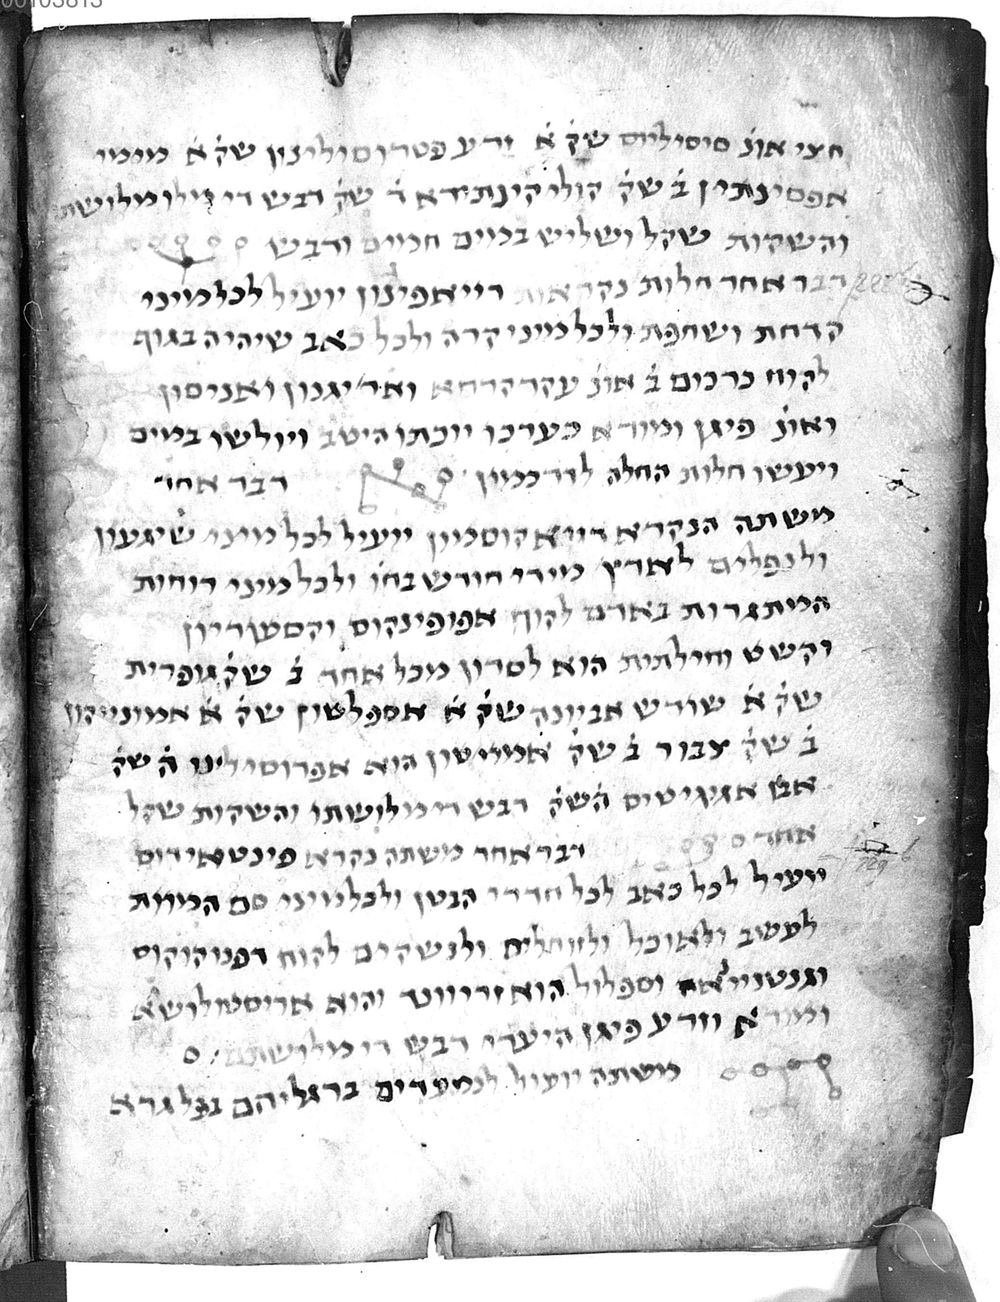 חצי אונ׳ סיסיליוס שק׳ א׳ זרע פטרוסילינון שק׳ א׳ מומי
אפסינתין ב׳ שק׳ קוליקינתידא ד׳ שק׳ דבש די
והשקות שקל ושליש במים חמים ודבש
דבר אחר חלות נקראות דייאפיגנון יועיל לכל מיני
קדחת ושחפת ולכל מיני קרה ולכל כאב שיהיה בגוף
לקוח כרכום ב׳ אונ׳ עקרקרחא ואריגנון ואניסון
ואונ׳ פיגן ומורא כערכו יוכתו היטב ויולשו במים
ויעשו חלות החלה לדרכמון דבר אחר
משתה הנקרא דייאקוסמין יועיל לכל מיני שיגעון
ולנפלים לארץ מידי חודש בחו׳ ולכל מיני רוחות
המיתגרות באדם לקוח אפופינקוס וקסטוריון
וקשט וחילתית הוא לסרון מכל אחד ב׳ שק׳ גופרית
שק׳ א׳ שורש אביונה שק׳ א׳ אספלטון שק׳ א׳ אמוניקון
ב׳ שק׳ צבור ב׳ שק׳ הוא אפרוסילינו ה׳ שק׳
ה׳ שק׳ דבש די מילושתו והשקות שקל
אחד דבר אחר משתה נקרא פינטאידוס
יועיל לכל כאב לכל חדרי הבטן ולכל מיני סם המות
לעשוב ולאוכל ולנשקים לקוח דפנוקוקוס
וספלול הוא והוא
ומורא וזרע פיגן היערי דבש די מילושתם
משתה יועיל לנמעדים ברגליהם